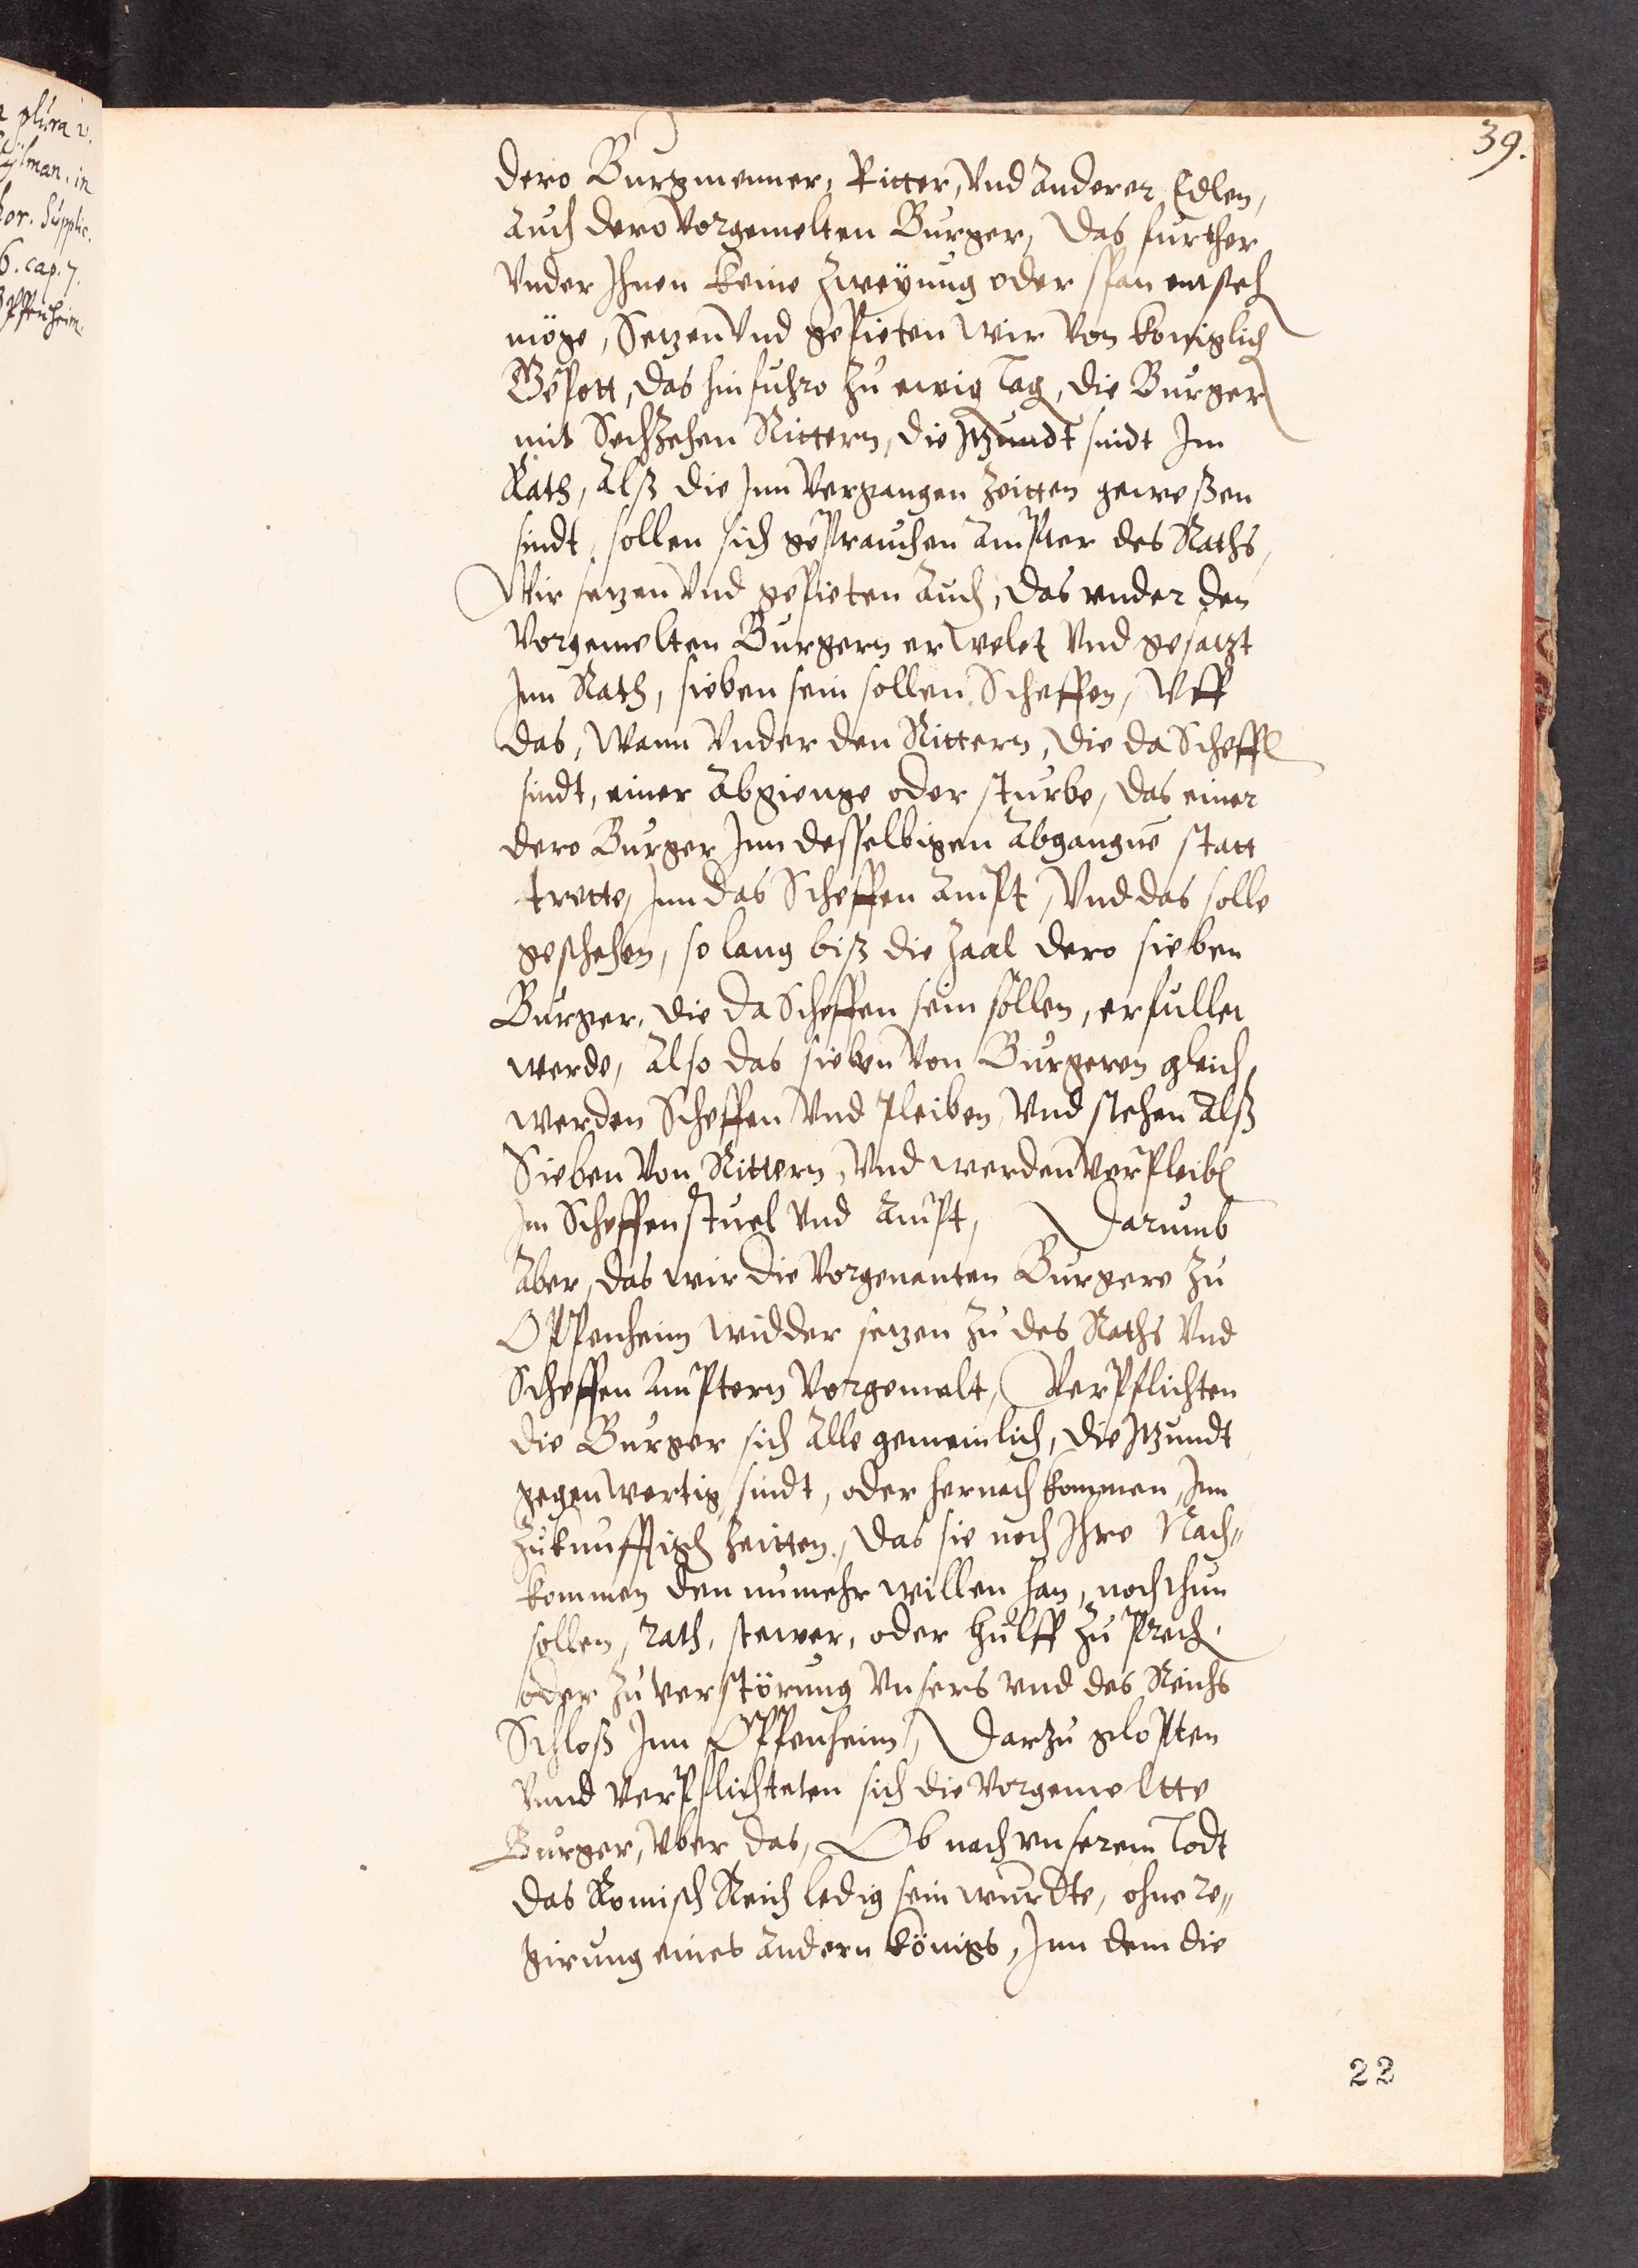 39.
a plura v.
Gÿlman. in
hor. Supplic.
6. cap. 7.
Oppenheim.
dero Burgmenner, Ritter, Vnd Anderer Edlen,
Auch dero Vorgemelten Burger, das further
Vnder Ihnen keine Zweÿung oder span entsteh
möge, Setzen Vnd gepieten Wir Von königlich
Gepott, das hinfuhro zu ewig Tag, die Burger
mit Sechzehen Rittern, die Itzundt sindt Im
Rath, Alß die Inn Vergangen Zeitten geweßen
sindt, sollen sich geprauchen Ampter des Raths,
Wir setzen Vnd gepieten Auch, das vnder den
Vorgemelten Burgern erwelet Vnd gesatzt
Inn Rath, sieben sein sollen Scheffen, Vff
das, Wann Vnder den Rittern, die da Scheffen
sindt, einer Abgienge oder sturbe, das einer
dero Burger Inn desselbigen Abgangne statt
trette, Inn das Scheffen Ampt, Vnd das solle
geschehen, so lang biß die Zaal dero sieben
Burger, die da Scheffen sein sollen, erfullet
werde, Also das sieben Von Burgeren gleich,
werden Scheffen Vnd pleiben, Vnd stehen Alß
Sieben Von Rittern, Vnd werden Verpleiben
Im Scheffenstuel Vnd Ampt, Darumb
Aber, das wir die Vorgenanten Burgere zu
Oppenheim widder setzen zu des Raths Vnd
Scheffen Amptern Vorgemelt, Verpflichten
die Burger sich Alle gemeinlich, die Itzundt
gegenwertig sindt, oder hernach kommen, Inn
Zukunfftigen Zeitten, das sie noch Ihre Nach„
kommen den nimmehr willen han, noch thun
sollen, rath, stewer, oder hulff zu prech,
oder zu verstörung Vnsers vnd des Reichs
Schloß Inn Oppenheim, Darzu glopten
Vnnd Verpflichteten sich die Vorgemeltte
Burger, Vber das, Ob nach vnserem Todt
das Römisch Reich ledig sein wurdte, ohne re„
girung eines Andern Königs, Inn dem die
22